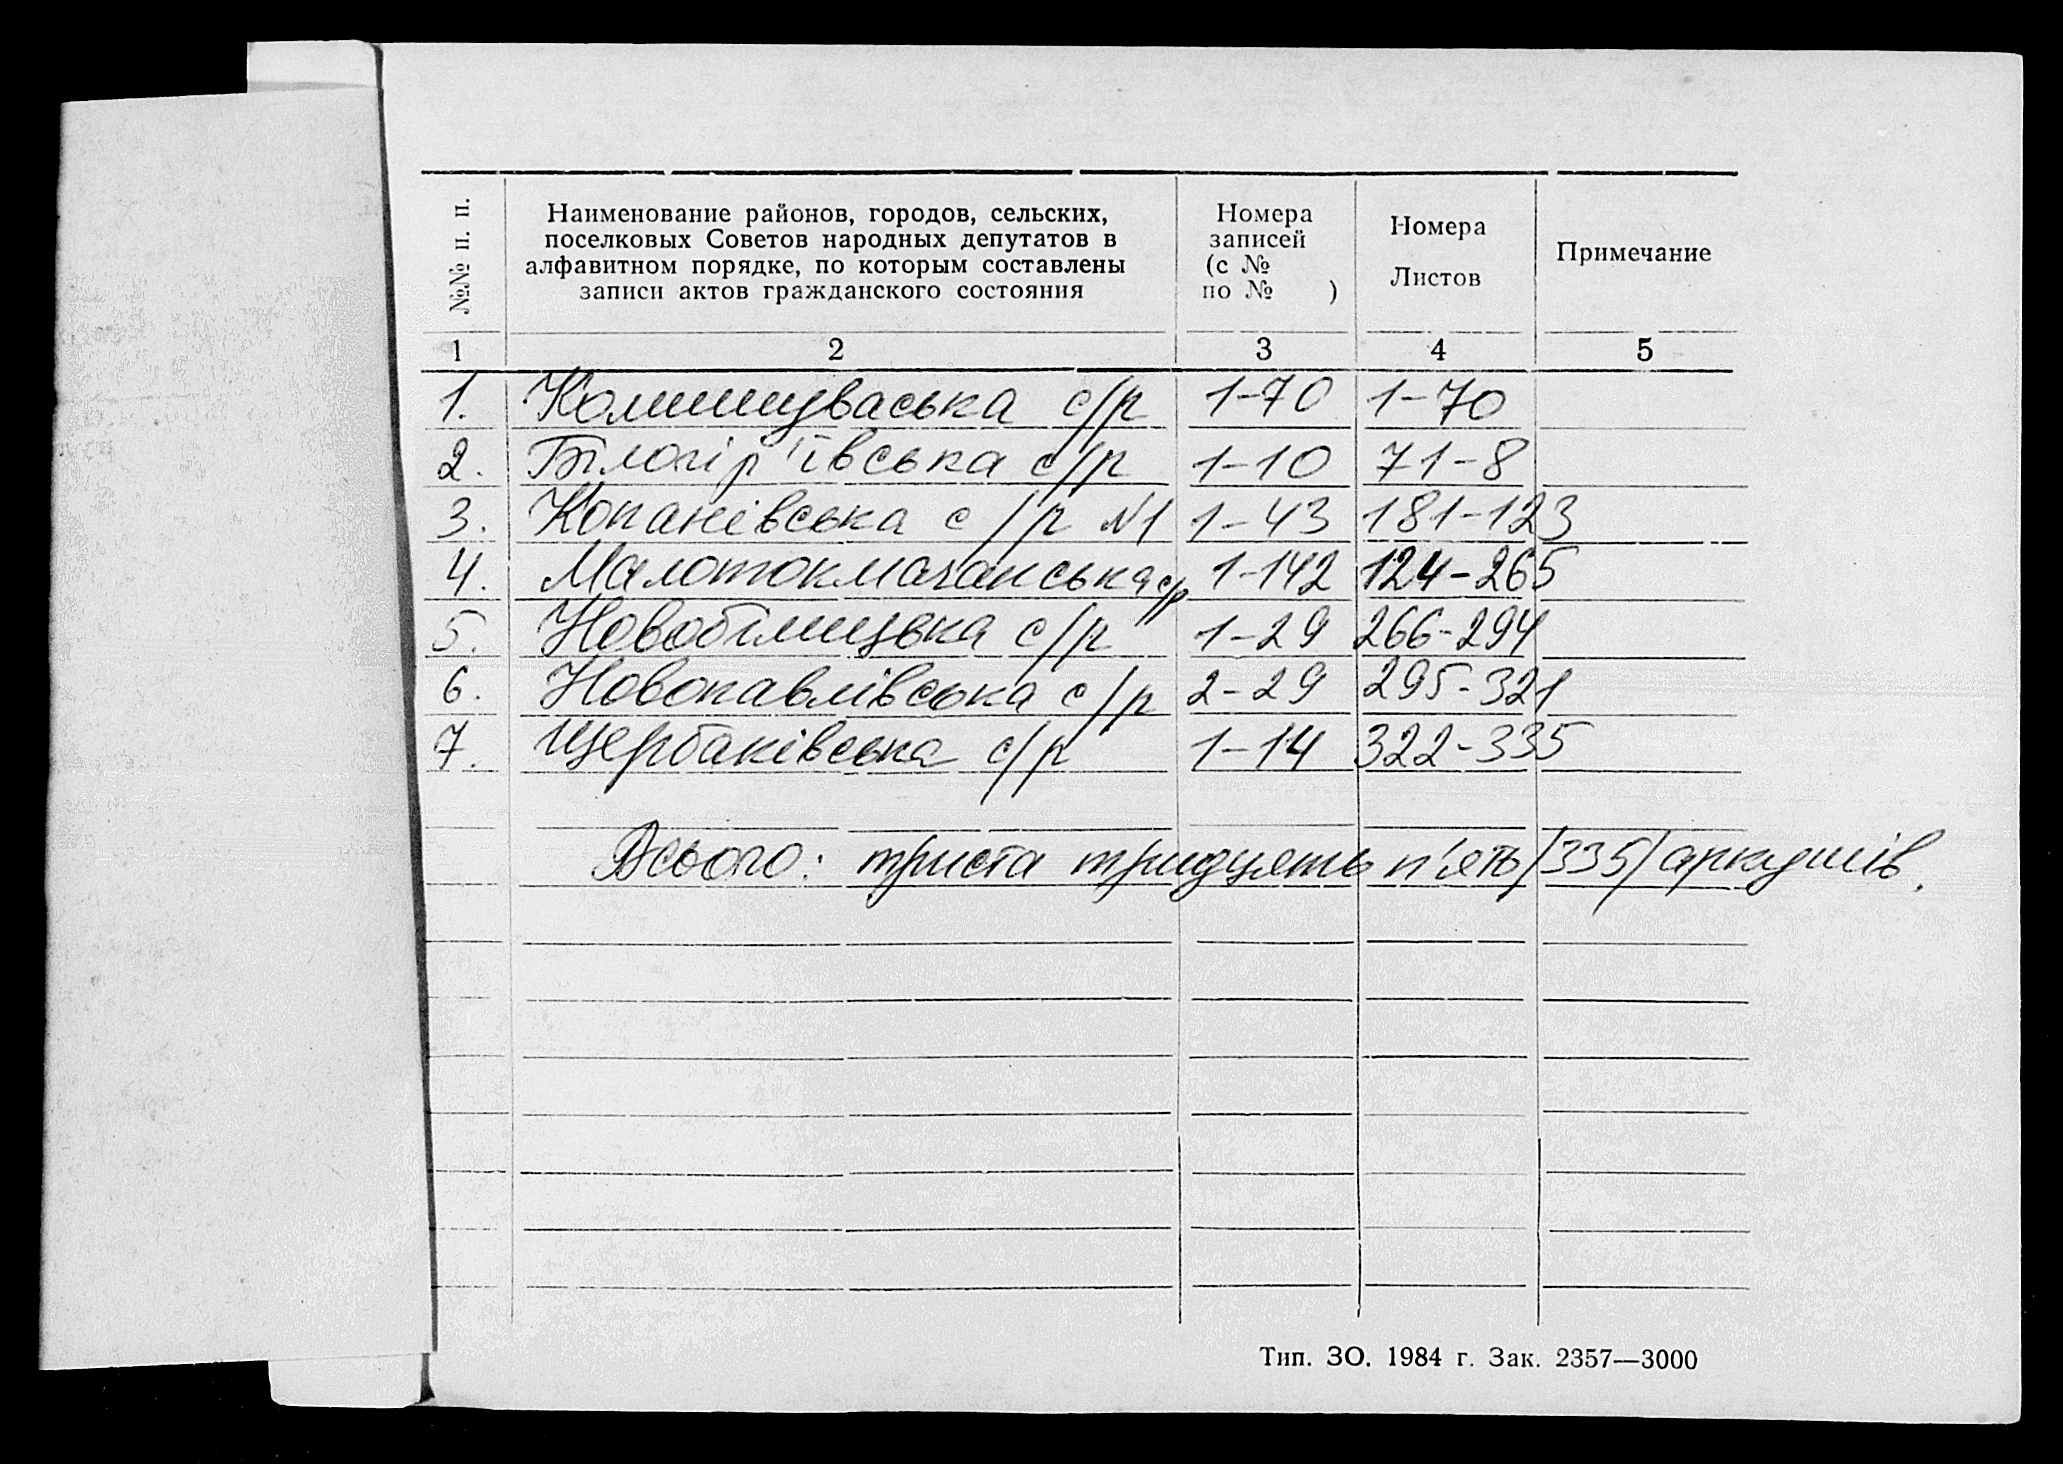 №№ п. п.
Наименование районов, городов, сельских,
поселковых Советов народных депутатов в
алфавитном порядке, по которым составлены
записи актов гражданского состояния
Номера
записей
(с №
по № )
Номера
Листов
Примечание
1 2 3 4 5
1. Комишуваська с/р 1-70 1-70
2. Білогір'ївська с/р 1-10 71-8
3. Копанівська с/р N1 1-43 181-123
4. Малотокмачанська с/р 1-142 124-265
5. с/р 1-29 266-294
6. Новопавлівська с/р 2-29 295-321
7. Щербаківська с/р 1-14 322-335
Всього: триста тридцять п'ять /335/ аркушів.
Тип. ЗО. 1984 г. Зак. 2357—3000